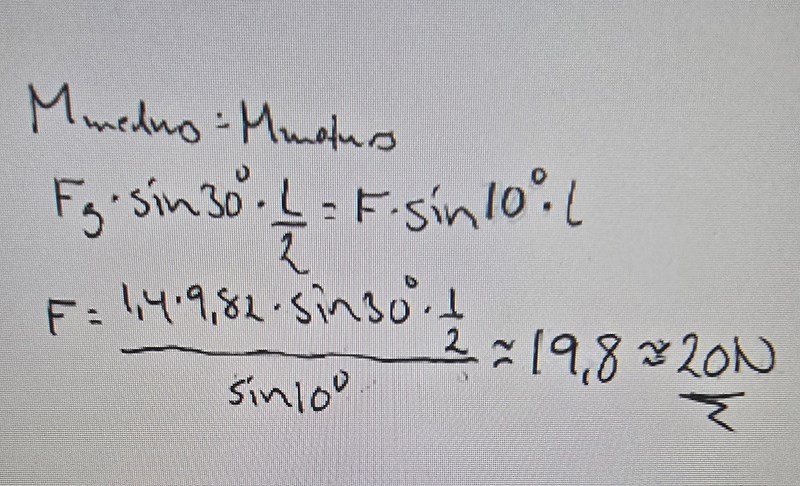 Mmedurs = Mmoturs
Fg · sin30° · L/2 = F · sin10° · L
F = 1,4 · 9,82 · sin30° · 1/2 / sin10° ≈ 19,8 ≈ 20N